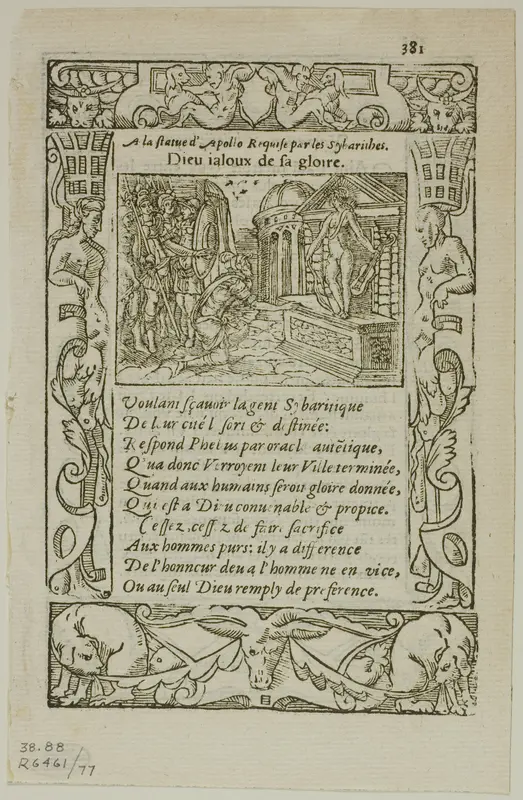 381
A la statue d'Apollo Requise par les Sybarithes.
Dieu ialoux de sa gloire.
Voulant sçauoir la gent Sybaritique
De leur cité l sort & destinée:
Respond Phebus par oracle autẽtique,
Qu'ua donc Verroyent leur Ville terminée,
Quand aux humains seroit gloire donnée,
Qui est a Dieu conuenable & propice.
Cessez, cessez de faire sacrifice
Aux hommes purs: il y a difference
De l'honneur deu a l'homme ne en vice,
Ou au seul Dieu remply de preference.
38.88
R6461/77